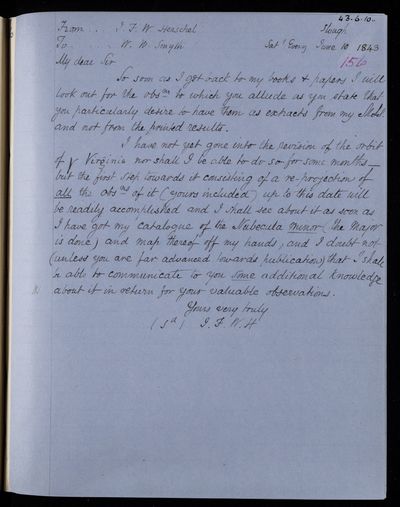 43.6.10.
From . . . J. F. W. Herschel Slough
To . . . W. H. Smyth Satʸ Eveng June 10 1843
156
My dear Sir
So soon as I get back to my books & papers I will
look out for the obsⁿˢ to which you allude as you state that
you particularly desire to have them as extracts from my Mss.
and not from the printed results.
I have not yet gone into the revision of the orbit
of γ Virginis nor shall I be able to do so for some months_
but the first step towards it consisting of a re-projection of
all the obsⁿˢ of it (yours included) up to this date will
be readily accomplished and I shall see about it as soon as
I have got my catalogue of the Nubecula minor (the Major
is done) and map thereof off my hands, and I doubt not
(unless you are far advanced towards publication) that I shall
be able to communicate to you some additional knowledge
about it in return for your valuable observations.
Yours very truly
(sᵈ) J. F. W. H